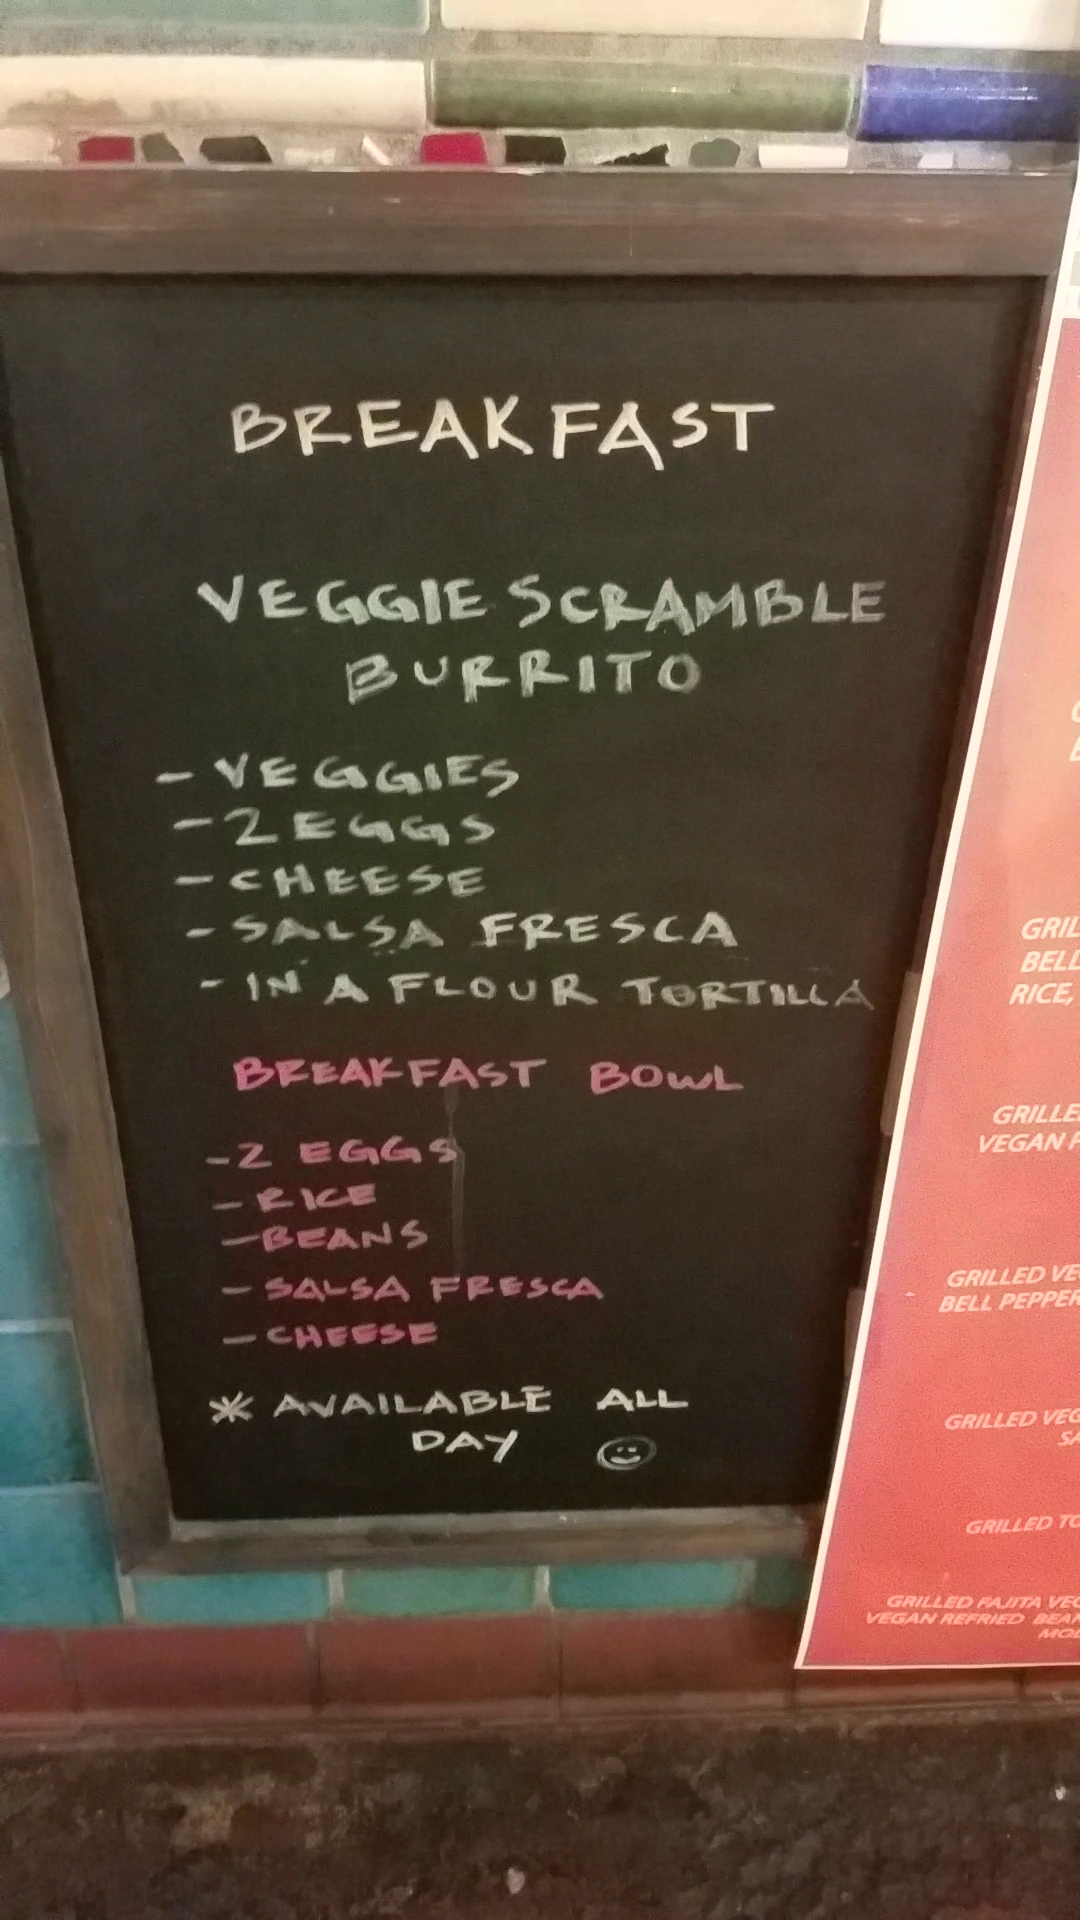 BREAKFAST
VEGGIE SCRAMBLE
BURRITO
- VEGGIES
- 2 EGGS
- CHEESE
- SALSA FRESCA
- IN A FLOUR TORTILLA
BREAKFAST BOWL
- 2 EGGS
- RICE
- BEANS
- SALSA FRESCA
- CHEESE
* AVAILABLE ALL
DAY
BELL
RICE,
VEGAN
GRILLED
BELL PEPPER
GRILLED
GRILLED
GRILLED FAJITA
VEGAN REFRIED